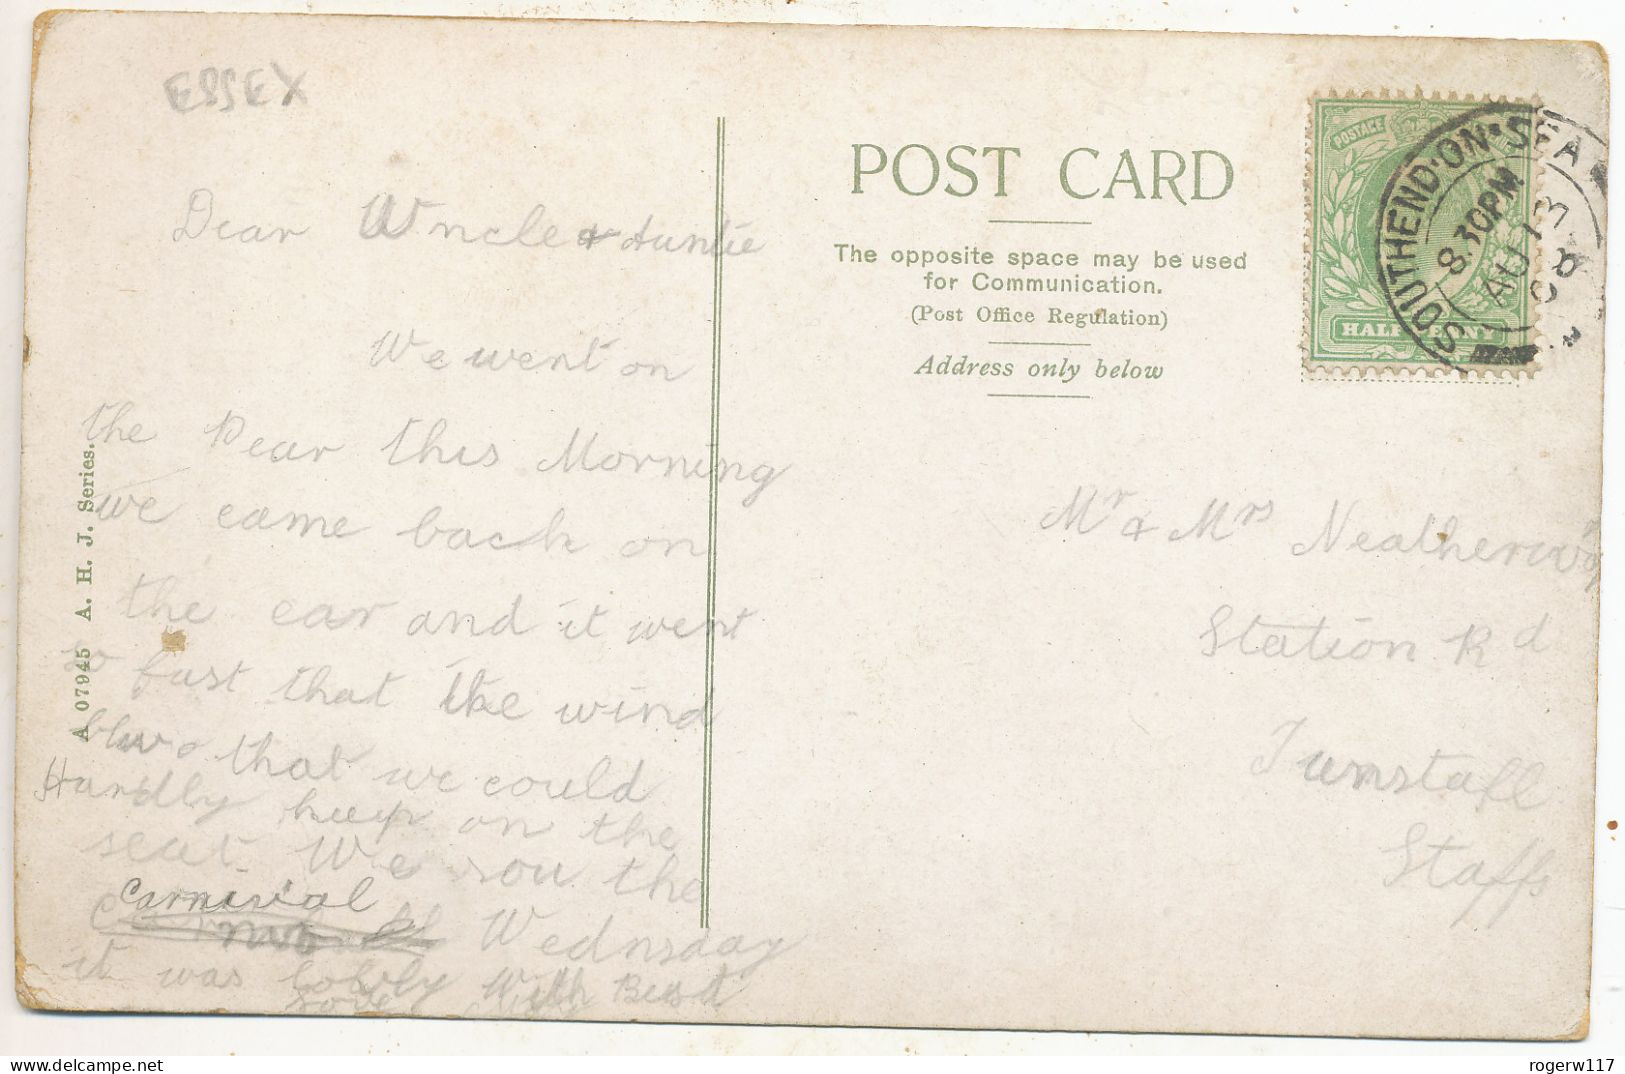 ESSEX
Dear Uncle & Auntie
We went on
the Pear this Morning
we came back on
the car and it went
so fast that the wind
blwo that we could
Hardly keep on the
seat. We sou the
Carnival
Wednsday
it was lovly With Best
Love
A 07945 A. H. J. Series.
POST CARD
The opposite space may be used
for Communication.
(Post Office Regulation)
Address only below
POSTAGE
HALFPENNY
SOUTHEND-ON-SEA
8.30PM
AU 13
08
Mr & Mrs
Station Rd
Tunstall
Staffs
rogerw117